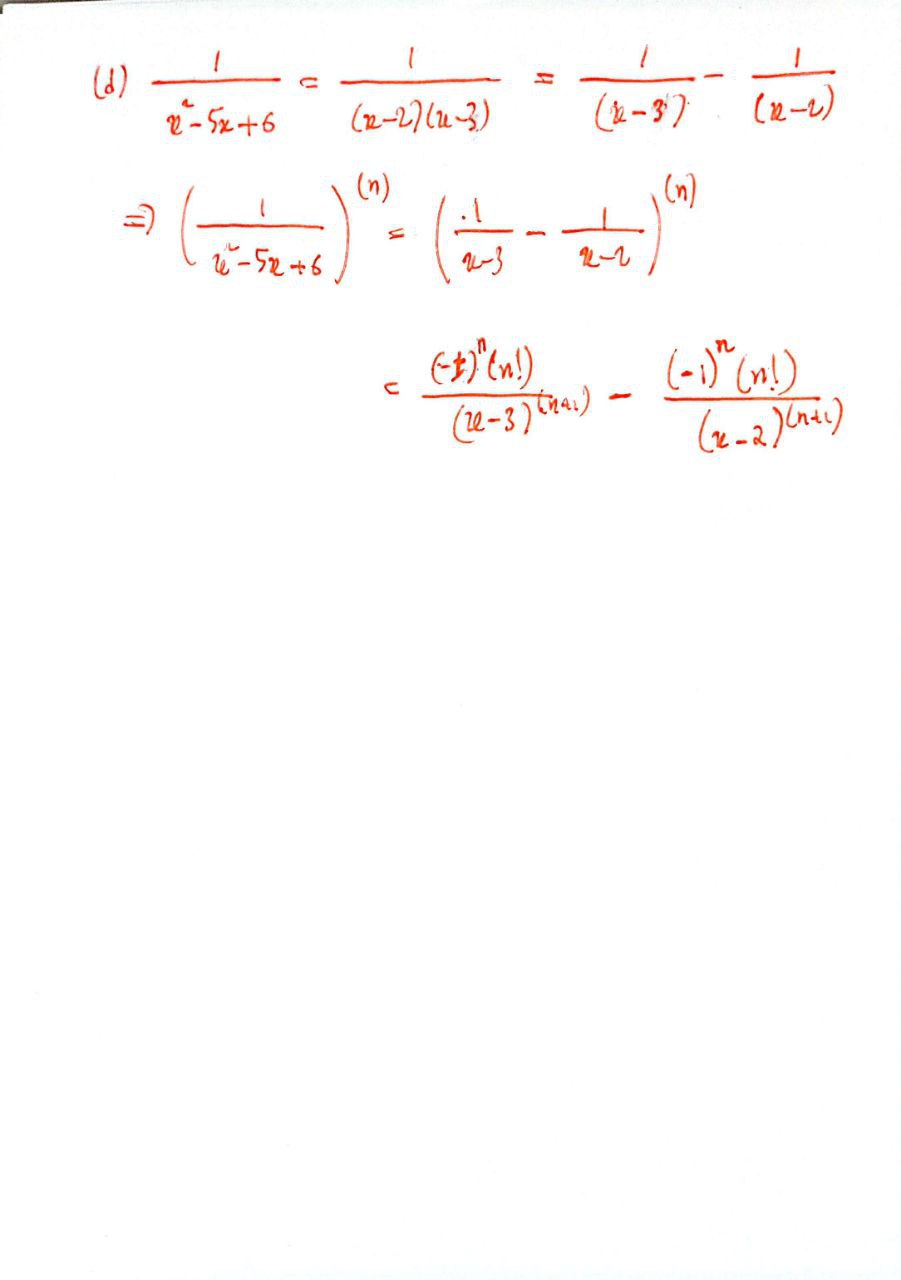 (d) 1/(x²-5x+6) = 1/((x-2)(x-3)) = 1/(x-3) - 1/(x-2)
⇒ (1/(x²-5x+6))^(n) = (1/(x-3) - 1/(x-2))^(n)
= (-1)^n (n!)/(x-3)^(n+1) - (-1)^n (n!)/(x-2)^(n+1)